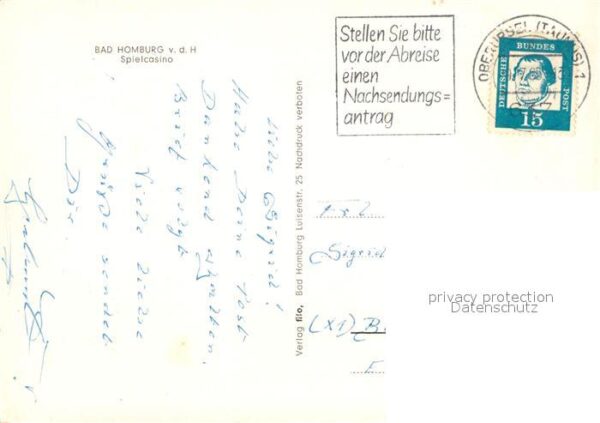 BAD HOMBURG v. d. H
Spielcasino
Stellen Sie bitte
vor der Abreise
einen
Nachsendungs=
antrag
OBERURSEL (TAUNUS) 1
DEUTSCHE BUNDES POST
15
Liebe Sigrid!
Habe Deine Post
Dankend erhalten.
Brief folgt
Viele liebe
Grüße sendet
Dir
Verlag filo, Bad Homburg Luisenstr. 25 Nachdruck verboten
Frl
Sigrid
(X1) B
privacy protection
Datenschutz